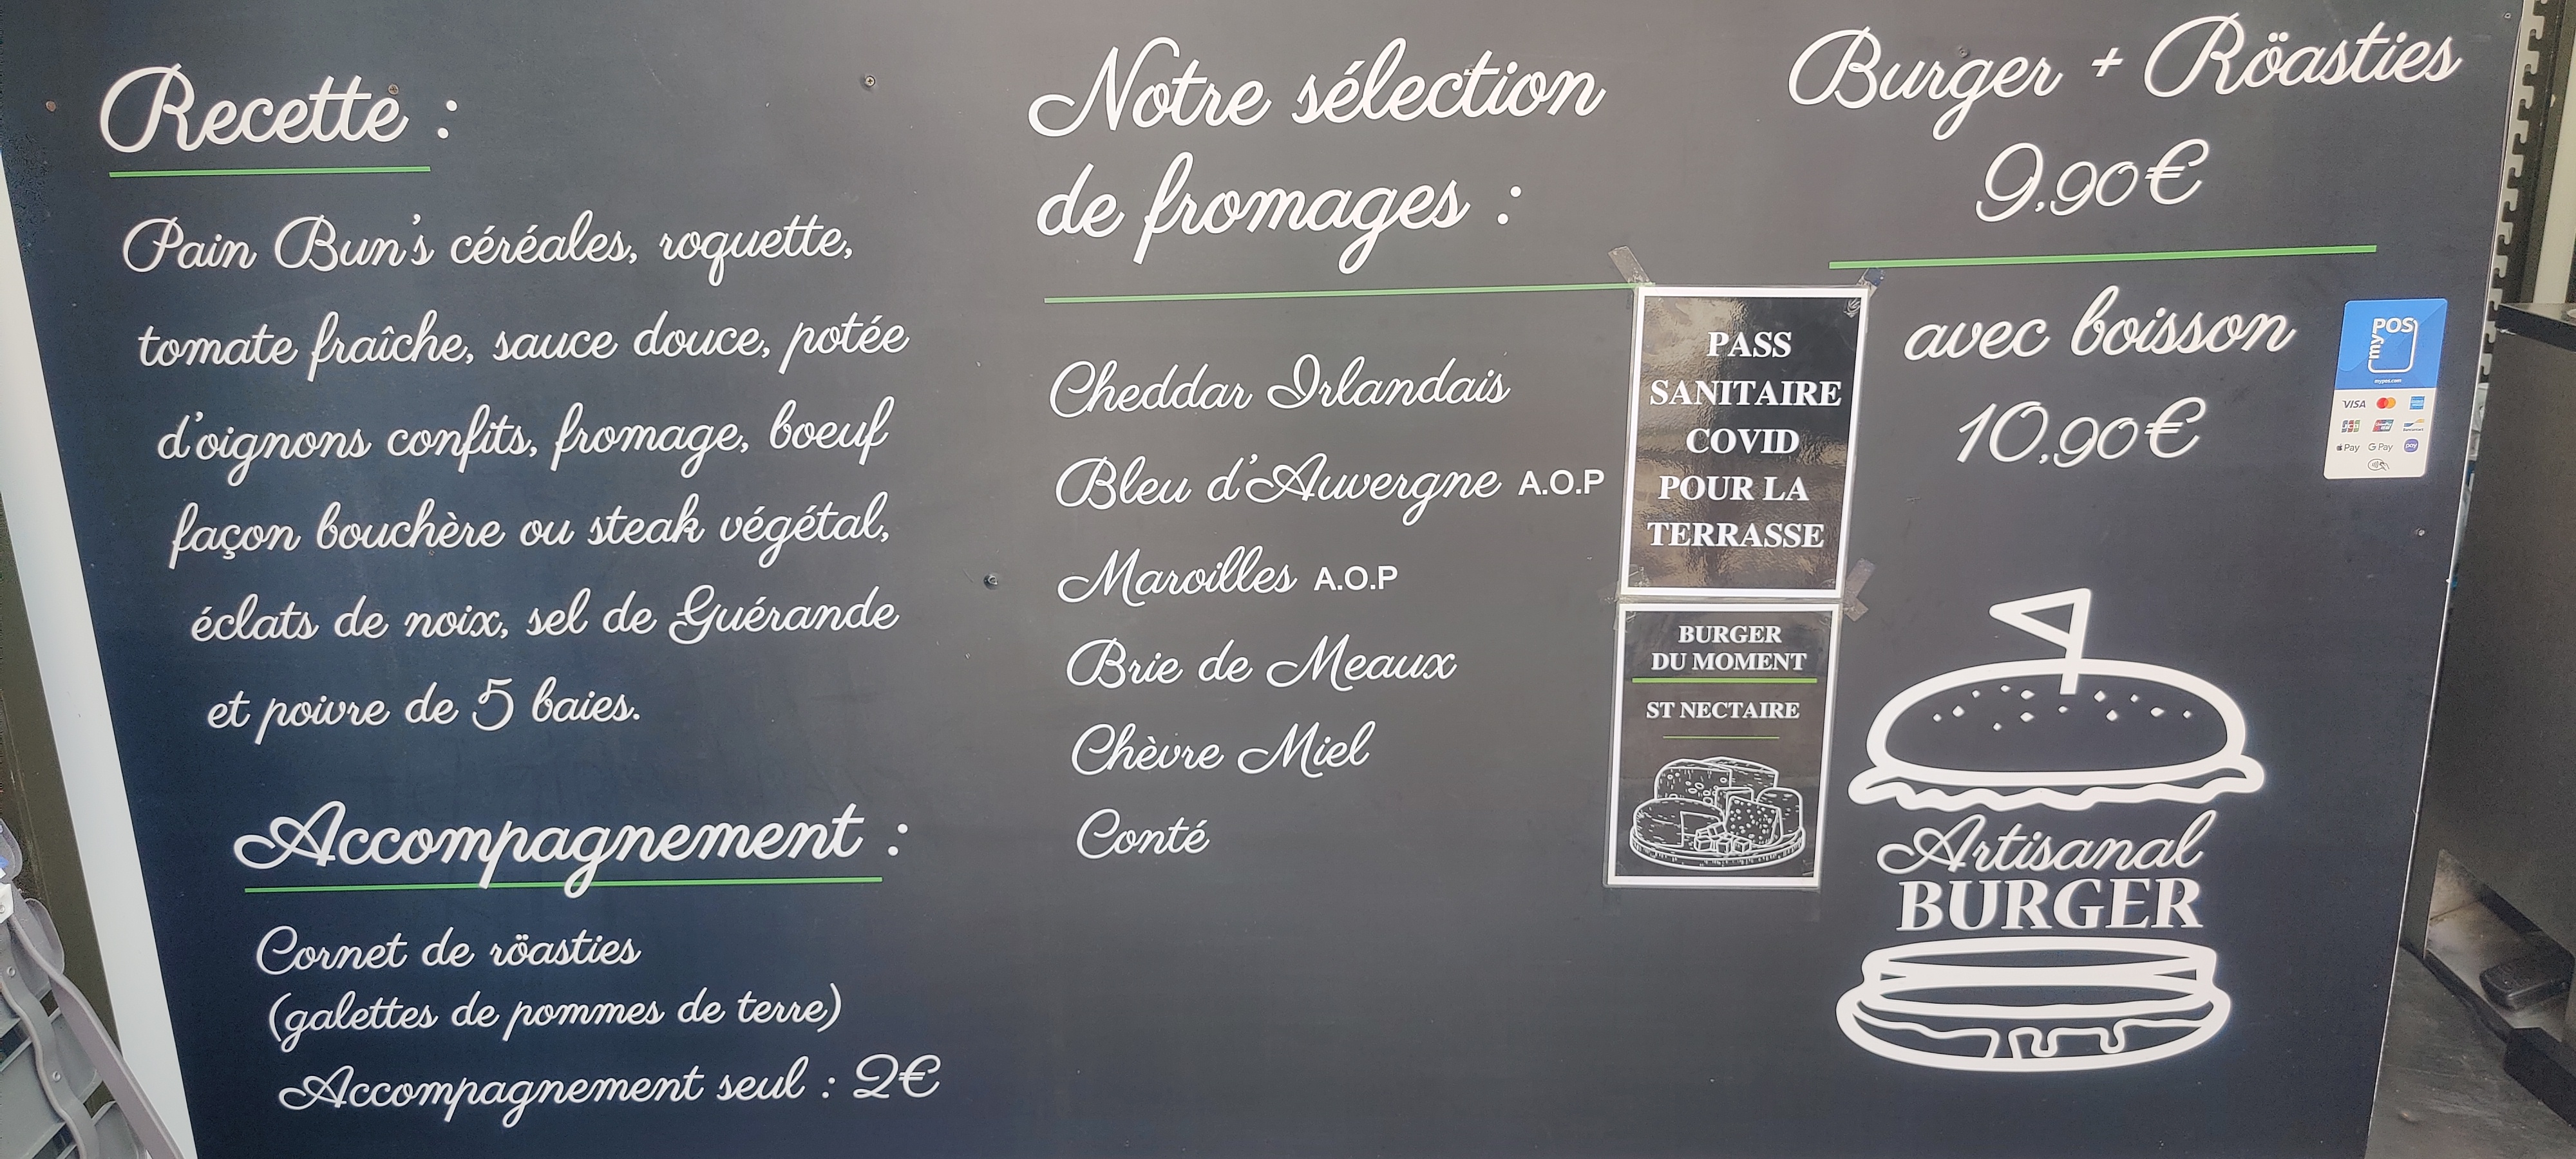 Recette :
Pain Bun's céréales, roquette,
tomate fraîche, sauce douce, potée
d'oignons confits, fromage, boeuf
façon bouchère ou steak végétal,
éclats de noix, sel de Guérande
et poivre de 5 baies.
Accompagnement :
Cornet de röasties
(galettes de pommes de terre)
Accompagnement seul : 2€
Notre sélection
de fromages :
Cheddar Irlandais
Bleu d'Auvergne A.O.P
Maroilles A.O.P
Brie de Meaux
Chèvre Miel
Conté
PASS
SANITAIRE
COVID
POUR LA
TERRASSE
BURGER
DU MOMENT
ST NECTAIRE
Burger + Röasties
9,90€
avec boisson
10,90€
myPOS
mypos.com
VISA
Pay G Pay
Artisanal
BURGER